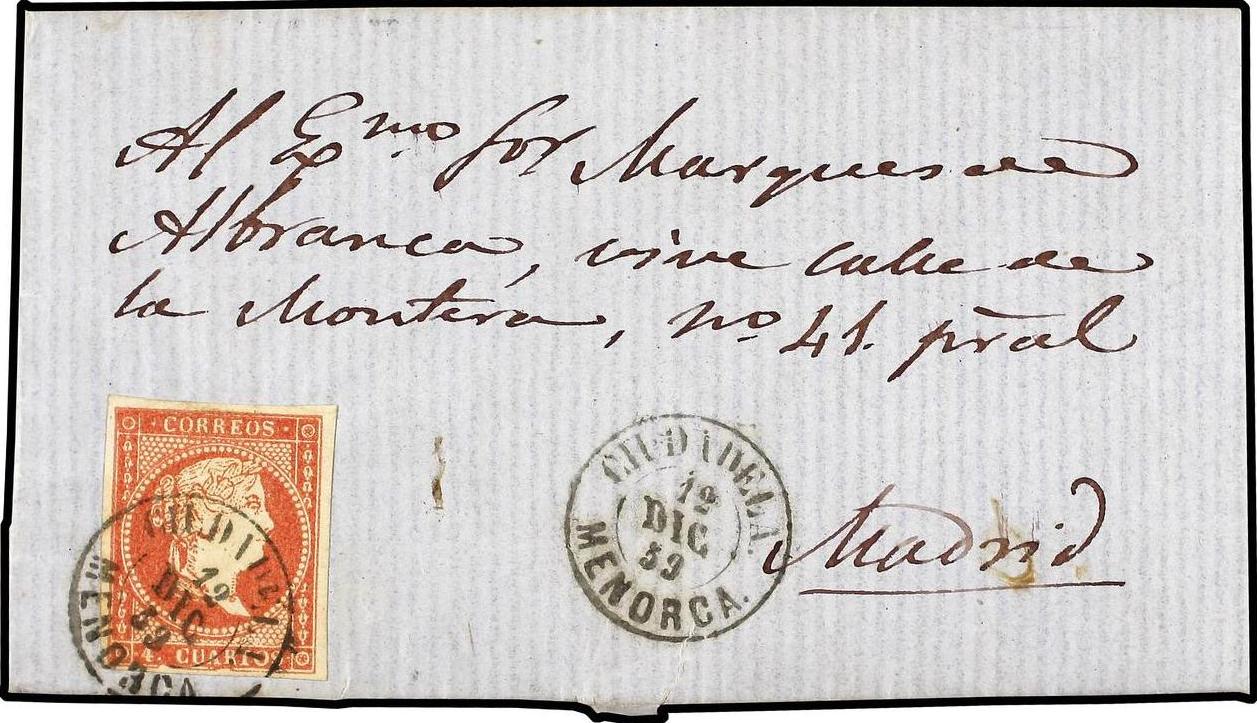 Al Exmo Sor Marques de
Albranca, vive calle de
la Montera, no 41. pral
Madrid
CORREOS
4. CUARTOS
CIUDADELA.
19
DIC
59
MENORCA.
CIUDADELA.
19
DIC
59
MENORCA